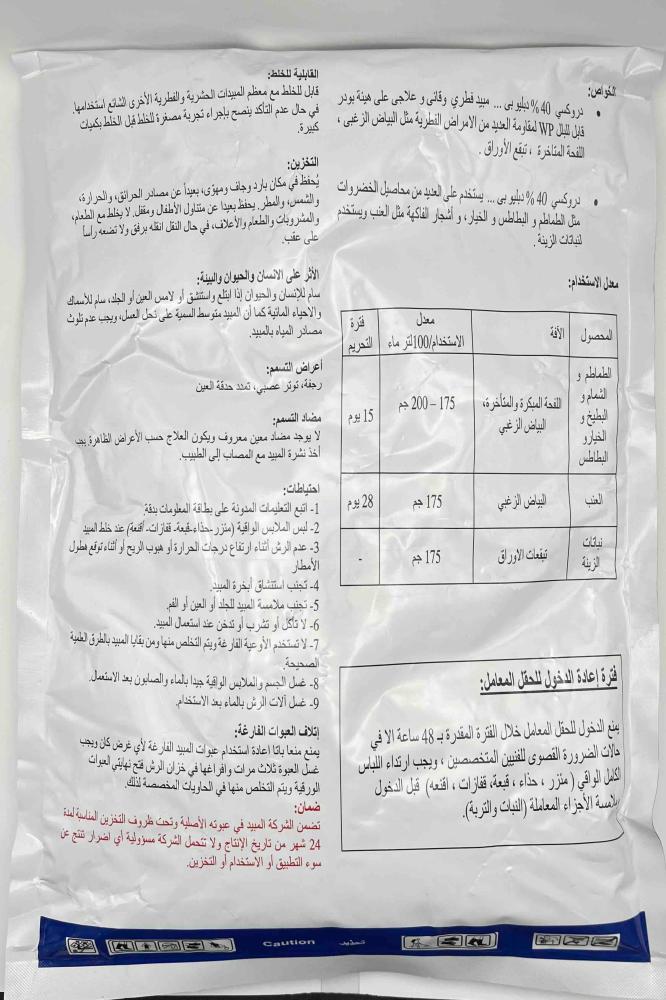 الخواص:
• دروكسي 40 % دبليو بي ... مبيد فطري وقائى و علاجى على هيئة بودر
قابل للبلل WP لمقاومة العديد من الامراض الفطرية مثل البياض الزغبى ،
اللفحة المتاخرة ، تبقع الأوراق .
• دروكسي 40 % دبليو بى ... يستخدم على العديد من محاصيل الخضروات
مثل الطماطم و البطاطس و الخيار، و أشجار الفاكهة مثل العنب ويستخدم
لنباتات الزينة .
معدل الاستخدام:
المحصول | الآفة | معدل الاستخدام/100لتر ماء | فترة التحريم
الطماطم و الشمام و البطيخ و الخيارو البطاطس | اللفحة المبكرة والمتأخرة، البياض الزغبي | 175 – 200 جم | 15 يوم
العنب | البياض الزغبي | 175 جم | 28 يوم
نباتات الزينة | تبقعات الاوراق | 175 جم | -
فترة إعادة الدخول للحقل المعامل:
يمنع الدخول للحقل المعامل خلال الفترة المقدرة بـ 48 ساعة الا في
حالات الضرورة القصوى للفنيين المتخصصين ، ويجب ارتداء اللباس
الكامل الواقي ( منزر ، حذاء ، قبعة، قفازات ، اقنعه) قبل الدخول
بلامسة الأجزاء المعاملة (النبات والتربة).
القابلية للخلط:
قابل للخلط مع معظم المبيدات الحشرية والفطرية الأخرى الشائع استخدامها.
في حال عدم التأكد ينصح بإجراء تجربة مصغرة للخلط قبل الخلط بكميات
كبيرة.
التخزين:
يُحفظ في مكان بارد وجاف ومهوّى، بعيداً عن مصادر الحرائق، والحرارة،
والشمس، والمطر. يحفظ بعيدا عن متناول الأطفال ومقفل. لا يخلط مع الطعام،
والمشروبات والطعام والأعلاف، في حال النقل انقله برفق ولا تضعه رأساً
على عقب.
الأثر على الانسان والحيوان والبيئة:
سام للإنسان والحيوان إذا ابتلع واستنشق أو لامس العين أو الجلد، سام للأسماك
والاحياء المائية كما أن المبيد متوسط السمية على نحل العسل، ويجب عدم تلوث
مصادر المياه بالمبيد.
أعراض التسمم:
رجفة، توتر عصبي، تمدد حدقة العين
مضاد التسمم:
لا يوجد مضاد معين معروف ويكون العلاج حسب الأعراض الظاهرة يجب
أخذ نشرة المبيد مع المصاب إلى الطبيب.
احتياطات:
1- اتبع التعليمات المدونة على بطاقة المعلومات بدقة
2- لبس الملابس الواقية (منزر-حذاء-قبعة- قفازات- أقنعة) عند خلط المبيد
3- عدم الرش أثناء ارتفاع درجات الحرارة أو هبوب الريح أو أثناء توقع هطول
الأمطار
4- تجنب استنشاق أبخرة المبيد.
5- تجنب ملامسة المبيد للجلد أو العين أو الفم.
6- لا تأكل أو تشرب أو تدخن عند استعمال المبيد.
7- لا تستخدم الأوعية الفارغة ويتم التخلص منها ومن بقايا المبيد بالطرق العلمية
الصحيحة.
8- غسل الجسم والملابس الواقية جيدا بالماء والصابون بعد الاستعمال.
9- غسل آلات الرش بالماء بعد الاستخدام.
إتلاف العبوات الفارغة:
يمنع منعا باتا إعادة استخدام عبوات المبيد الفارغة لأي غرض كان ويجب
غسل العبوة ثلاث مرات وافراغها في خزان الرش فتح نهايتي العبوات
الورقية ويتم التخلص منها في الحاويات المخصصة لذلك.
ضمان:
تضمن الشركة المبيد في عبوته الأصلية وتحت ظروف التخزين المناسبة لمدة
24 شهر من تاريخ الإنتاج ولا تتحمل الشركة مسؤولية أي اضرار تنتج عن
سوء التطبيق أو الاستخدام أو التخزين.
Caution تحذير